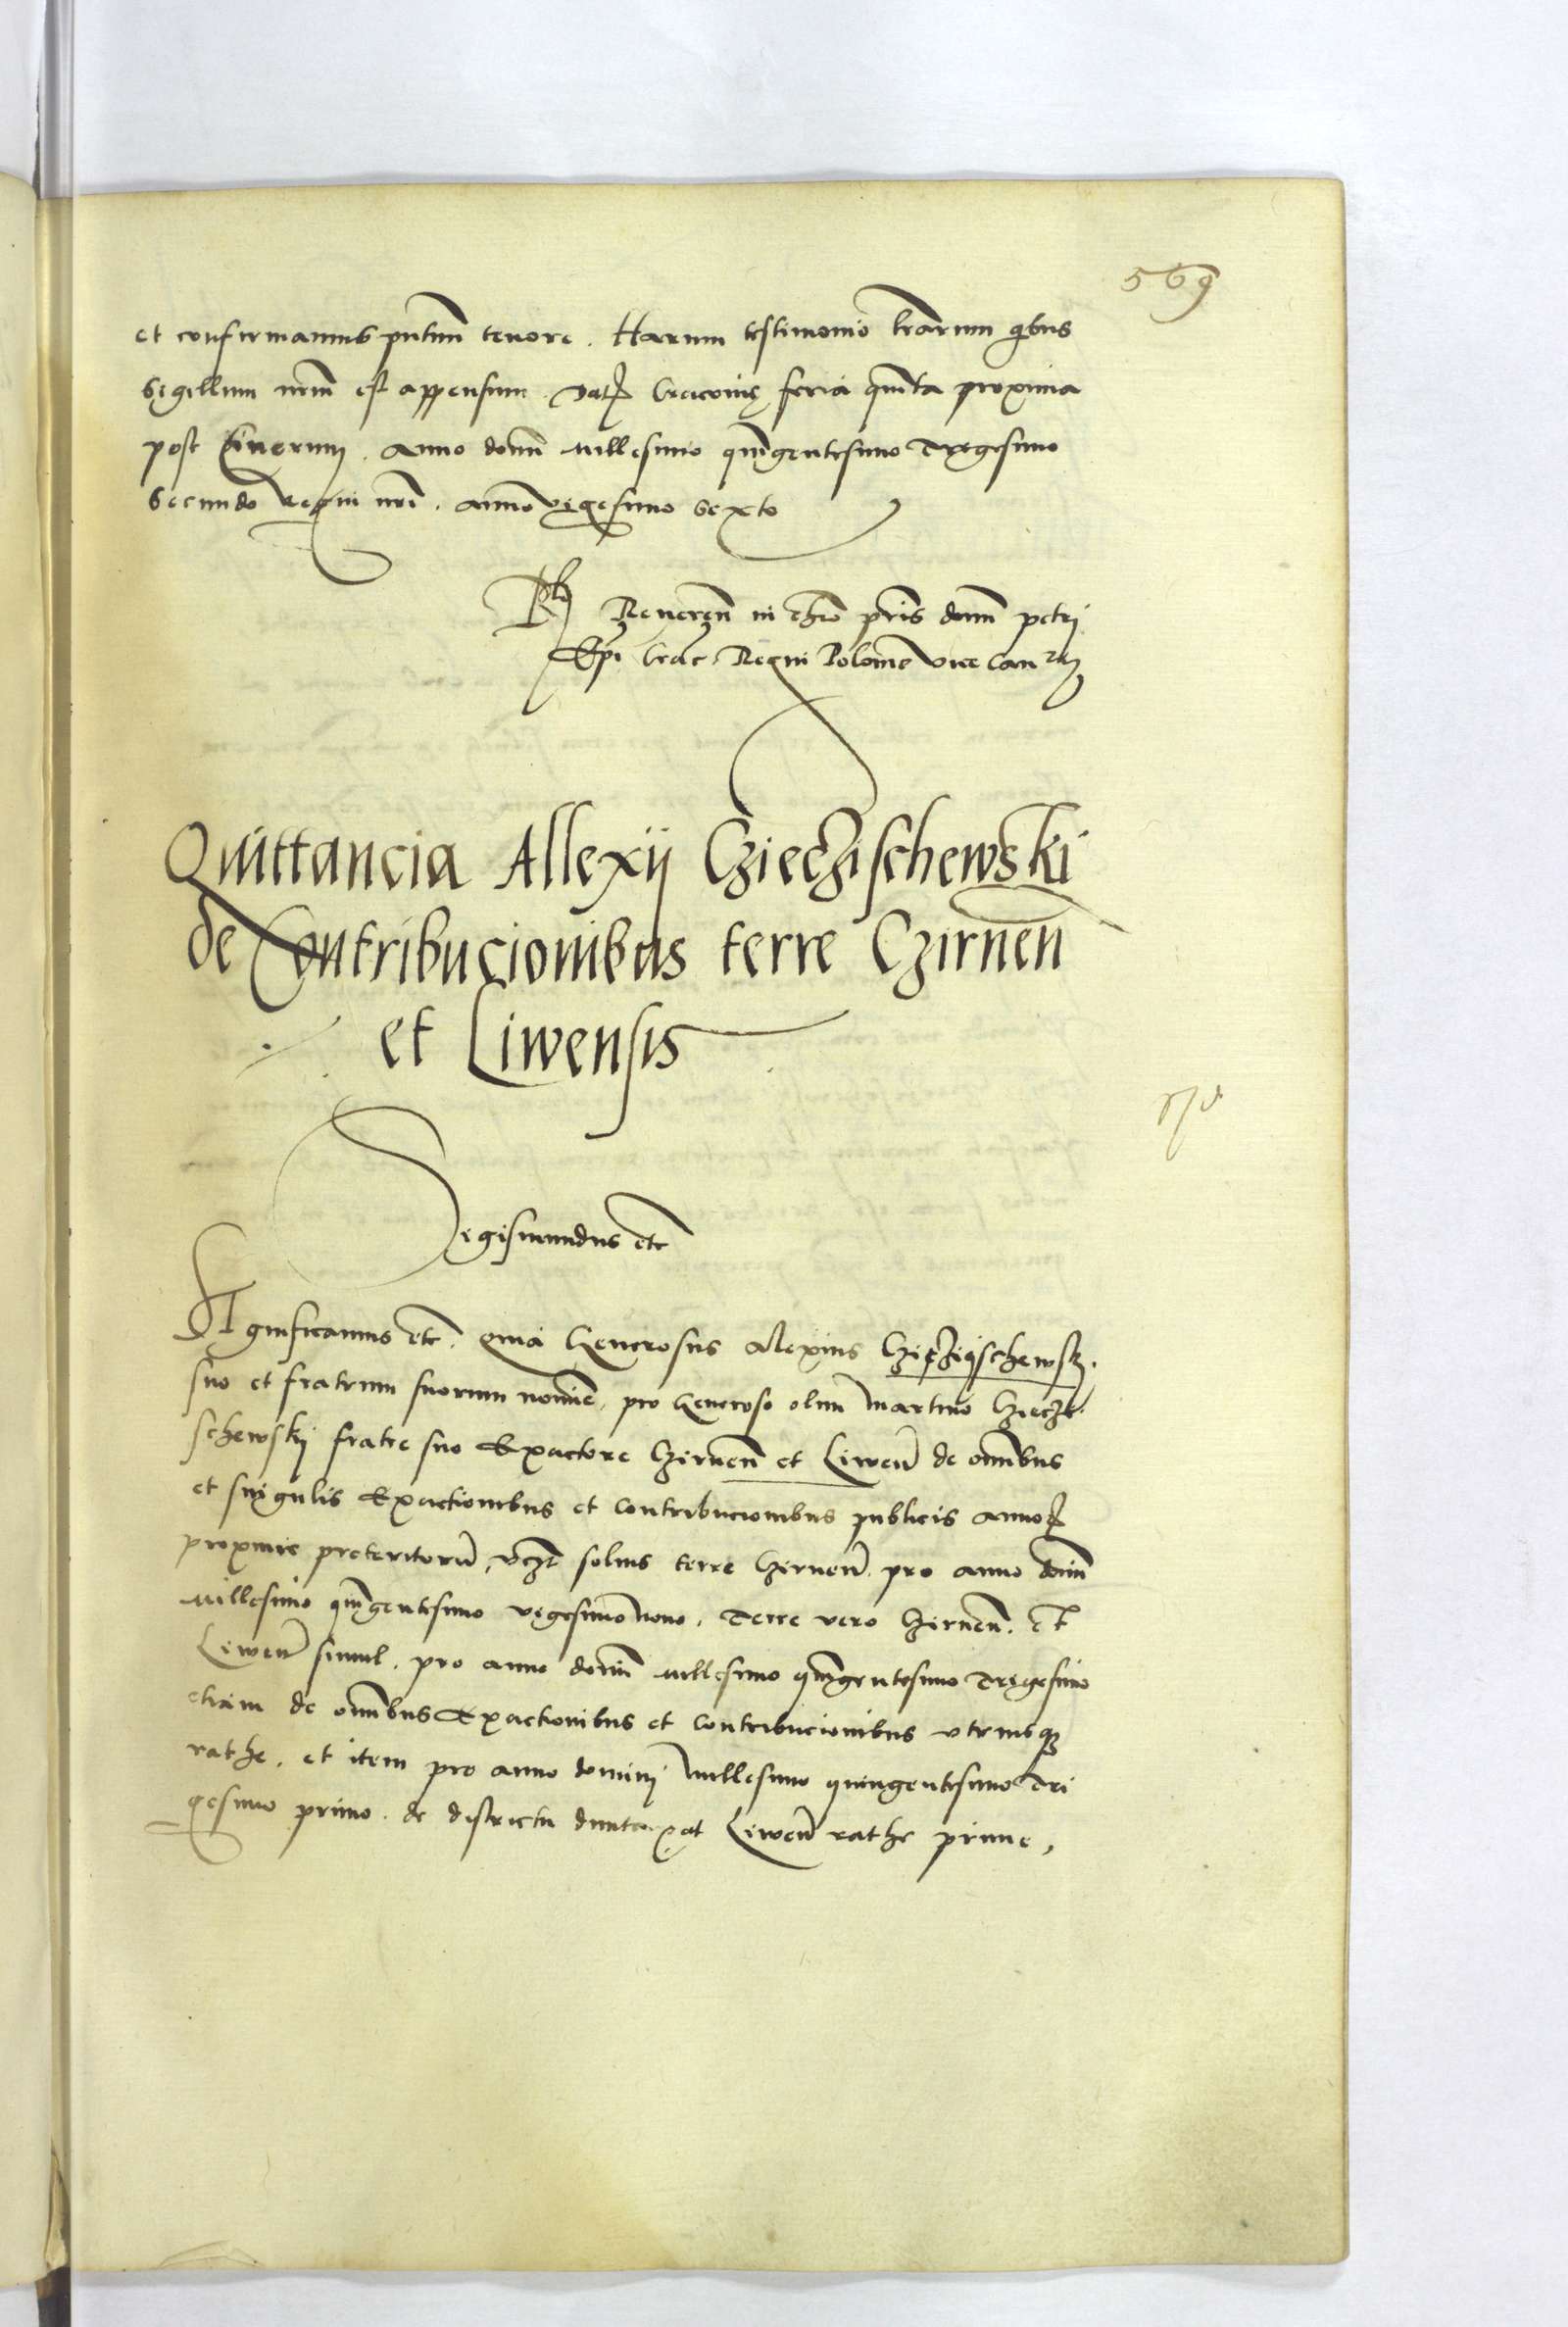 569
et confirmamus pñtim̃ tenore. Harum testimonio lr̃arum qibus
Sigillum nrm̃ est appensum. Dat̃ Cracovię feria quĩta proxima
post Cinerum. Anno dom̃ Millesimo quĩgentesimo Trigesimo
Secundo Regni nrĩ. anno vigesimo Sexto
Rlõ Reveren̄ in chrõ pr̃is dom̃ petrj
Ep̃i Crac̃ Regni Polonie vice Can
Quittancia Allexij Cziechischewski
de Contribucionibus terre Czirnen̄
et Liwensis
Sigismundus etc̃
Significamus etc̃. quia Generosus Alexius
suo et fratrum suorum nomĩe, pro Generoso olim Martino Cziechi
schewskj fratre suo Exactore Czirnen̄ et Liwen̄ de om̃ibus
et singulis Exactionibus et Contribucionibus publicis annoꝝ
proxime preteritorũ, vczt̃ solius terre Czirnen̄ pro anno dom̃
Millesimo quĩgentesimo vigesimonono. Terre vero Czirnen̄. et
Liwen̄ simul. pro anno dom̃ Millesimo quĩgentesimo Trigesimo
etiam de om̃ibus Exactionibus et Contribucionibus utriusqꝫ
rathe. et item pro anno dominj Millesimo quingentesimo Tri
gesimo primo. de districtu duntaxat Liwen̄ rathe prime,